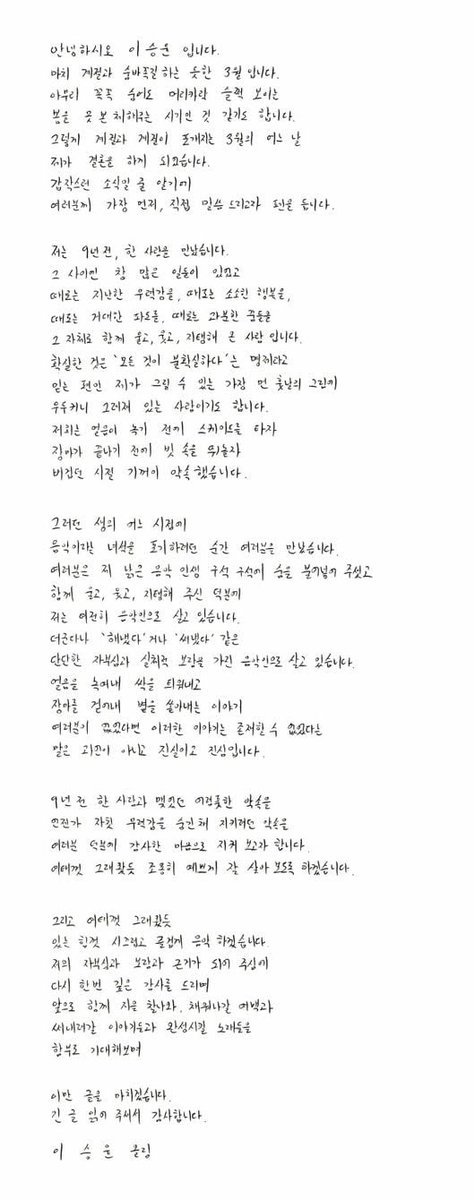 안녕하시오 이승윤 입니다.
마치 계절과 숨바꼭질 하는 듯한 3월 입니다.
아무리 꼭꼭 숨어도 머리카락 슬쩍 보이는
봄을 못 본 체해주는 시기인 것 같기도 합니다.
그렇게 계절과 계절이 포개지는 3월의 어느 날
제가 결혼을 하게 되었습니다.
갑작스런 소식일 줄 알기에
여러분께 가장 먼저, 직접 말씀 드리고자 펜을 듭니다.
저는 9년 전, 한 사람을 만났습니다.
그 사이엔 참 많은 일들이 있었고
때로는 지난한 무력감을, 때로는 소소한 행복을,
때로는 거대한 파도를, 때로는 과분한 꿈들을
그 자체로 함께 울고, 웃고, 지탱해 온 사람 입니다.
확실한 것은 '모든 것이 불확실하다' 는 명제라고
믿는 편인 제가 그릴 수 있는 가장 먼 훗날의 그림에
우두커니 그려져 있는 사람이기도 합니다.
저희는 얼음이 녹기 전에 스케이트를 타자
장마가 끝나기 전에 빗 속을 뛰놀자
버겁던 시절 기꺼이 약속했습니다.
그러던 생의 어느 시점에
음악이라는 녀석을 포기하려던 순간 여러분을 만났습니다.
여러분은 제 낡은 음악 인생 구석 구석에 숨을 불어넣어 주셨고
함께 울고, 웃고, 지탱해 주신 덕분에
저는 여전히 음악인으로 살고 있습니다.
더군다나 '해냈다' 거나 '써냈다' 같은
단단한 자부심과 실취적 보람을 가진 음악인으로 살고 있습니다.
얼음을 녹여내 싹을 틔워내고
장마를 걷어내 볕을 쏟아내는 이야기
여러분이 없었다면 이러한 이야기는 존재할 수 없었다는
말은 과언이 아니고 진실이고 진심입니다.
9년 전 한 사람과 맺었던 어렴풋한 약속을
언젠가 자칫 무력감을 숨긴 채 지키려던 약속을
여러분 덕분에 감사한 마음으로 지켜 보고자 합니다.
여태껏 그래왔듯 조용히 예쁘게 잘 살아 보도록 하겠습니다.
그리고 여태껏 그래왔듯
있는 힘껏 시끄럽고 즐겁게 음악 하겠습니다.
저의 자부심과 보람과 근거가 되어 주심에
다시 한번 깊은 감사를 드리며
앞으로 함께 지을 찰나와, 채워나갈 여백과
써내려갈 이야기들과 완성시킬 노래들을
함부로 기대해보며
이만 글을 마치겠습니다.
긴 글 읽어 주셔서 감사합니다.
이 승 윤 올림